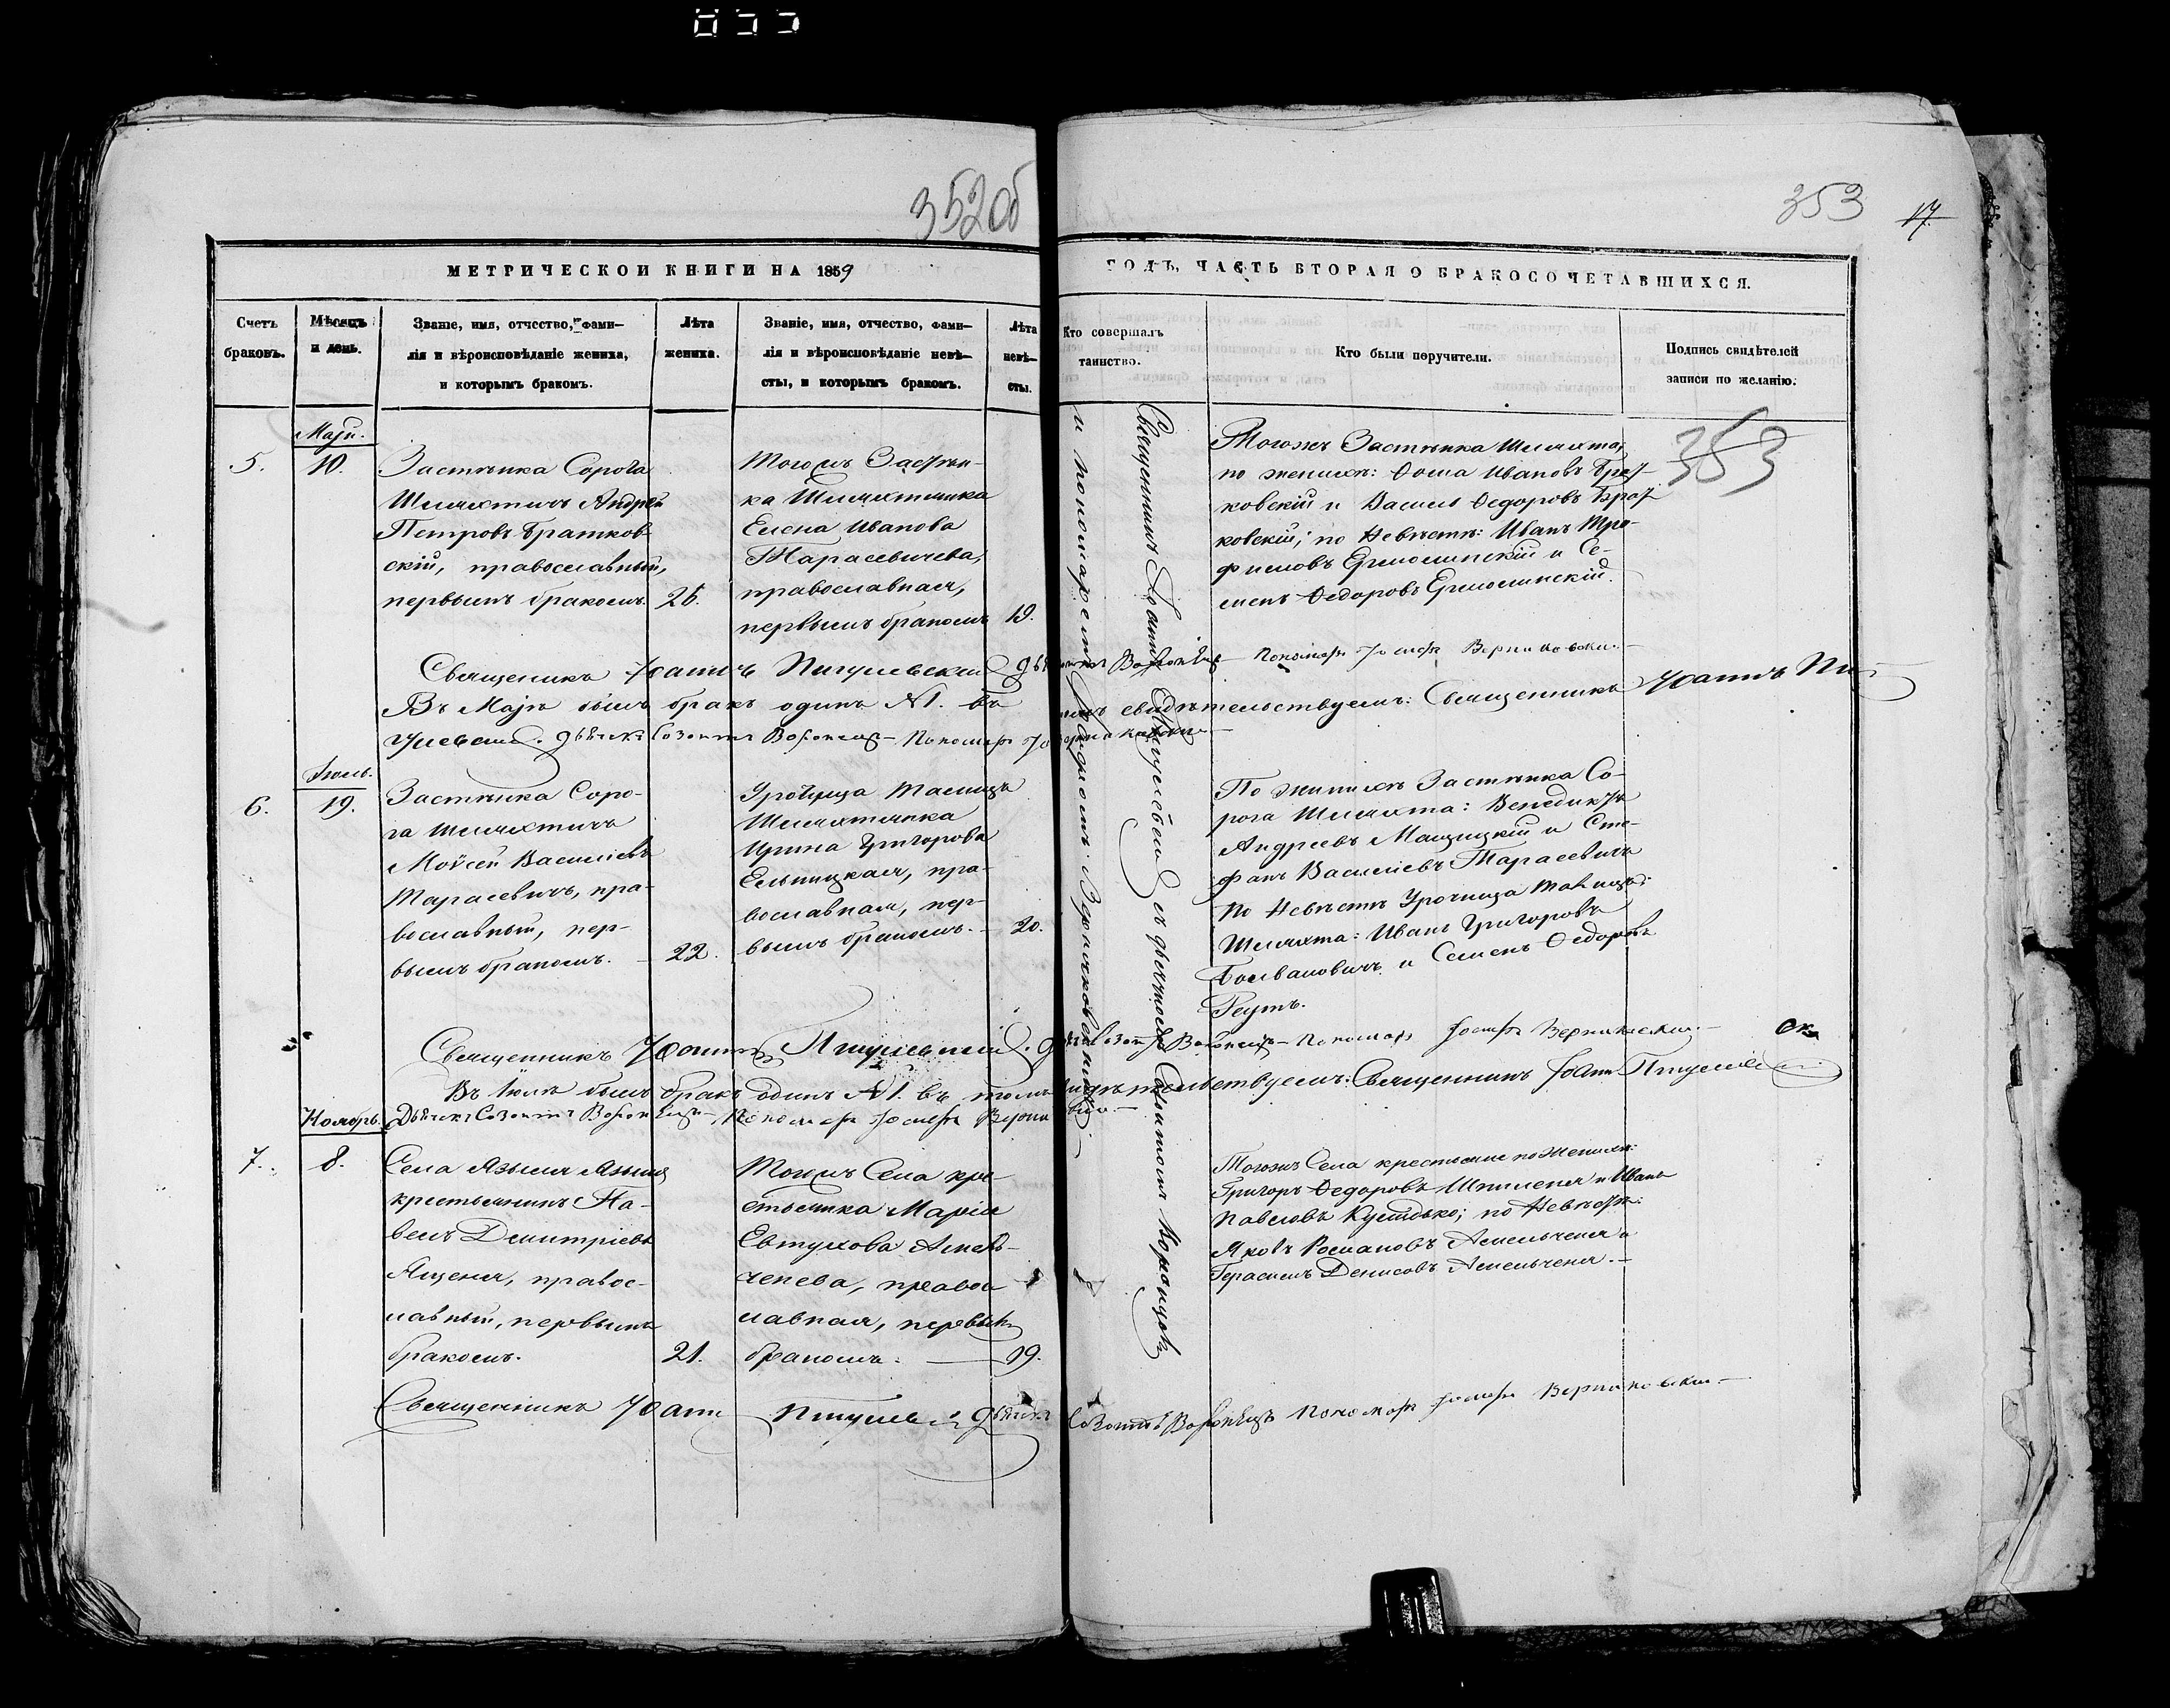 352 об
353
17.
МЕТРИЧЕСКОЙ КНИГИ НА 1859
ГОДЪ, ЧАСТЬ ВТОРАЯ О БРАКОСОЧЕТАВШИХСЯ.
Счетъ
браковъ.
Мѣсяцъ
и день.
Званіе, имя, отчество, фами-
лія и вѣроисповѣданіе жениха,
и которымъ бракомъ.
Лѣта
жениха.
Званіе, имя, отчество, фами-
лія и вѣроисповѣданіе невѣ-
сты, и которымъ бракомъ.
Лѣта
невѣ-
сты.
Кто совершалъ
таинство.
Кто были поручители.
Подпись свидѣтелей
записи по желанію.
Маjй.
5.
10.
Застѣнка Сорога
Шляхтичъ Андрей
Петровъ Братков-
скій, православный,
первымъ бракомъ.
25.
Тогожъ Застѣн-
ка Шляхтянка
Елена Иванова
Тарасевичева,
православная,
первымъ бракомъ
19.
Священникъ Іоаннъ
съ дьячкомъ Созонтомъ Воронцомъ
и пономаремъ Іосифомъ Верниковскимъ
Тогожъ Застѣнка Шляхта,
по женихѣ: Ѳома Ивановъ Брат-
ковскій и Василь Ѳедоровъ Брат-
ковскій; по Невѣстѣ: Иванъ Тро-
фимовъ Ермолинскій и Се-
менъ Ѳедоровъ Ермолинскій.
353
Священникъ Іоаннъ Пигулевскій Дьячекъ Воронецъ Пономарь Іосифъ Верниковскій
Въ Маjѣ былъ бракъ одинъ №1. въ томъ свидѣтельствуемъ: Священникъ Іоаннъ Пи-
гулевскій. Дьячекъ Созонтъ Воронецъ Пономарь
Іюль.
6.
19.
Застѣнка Соро-
га Шляхтичъ
Мойсей Василіевъ
Тарасевичъ, пра-
вославный, пер-
вымъ бракомъ.
22.
Урочища
Шляхтянка
Ирина Григорова
Ельницкая, пра-
вославная, пер-
вымъ бракомъ.
20.
По женихѣ Застѣнка Со-
рога Шляхта: Венедиктъ
Андреевъ Мащицкій и Сте-
фанъ Василіевъ Тарасевичъ
По Невѣстѣ Урочища
Шляхта: Иванъ Григоровъ
Болвановичъ и Семенъ Ѳедоровъ
Реутъ.
Священникъ Іоаннъ Пигулевскій. Дьячекъ Созонтъ Воронецъ Пономарь Іосифъ Верниковскій
Въ Іюлѣ былъ бракъ одинъ №1. въ томъ свидѣтельствуемъ: Священникъ Іоаннъ Пигулевскій
Дьячекъ Созонтъ Воронецъ Пономарь Іосифъ
Ноябрь.
7.
8.
Села Языля
крестьянинъ Па-
велъ Димитріевъ
Ященя, правос-
лавный, первымъ
бракомъ.
21.
Тогожъ Села кре-
стьянка Марія
Евтухова Амель-
ченева, право-
славная, первымъ
бракомъ.
19.
Тогожъ Села крестьяне по Женихѣ:
Григорь Ѳедоровъ Шпиленя и Иванъ
Павловъ; по Невѣстѣ:
Яковъ Романовъ Амельченя и
Герасимъ Денисовъ Амельченя.
Священникъ Іоаннъ Пигулевскій Дьячекъ Созонтъ Воронецъ Пономарь Іосифъ Верниковскій